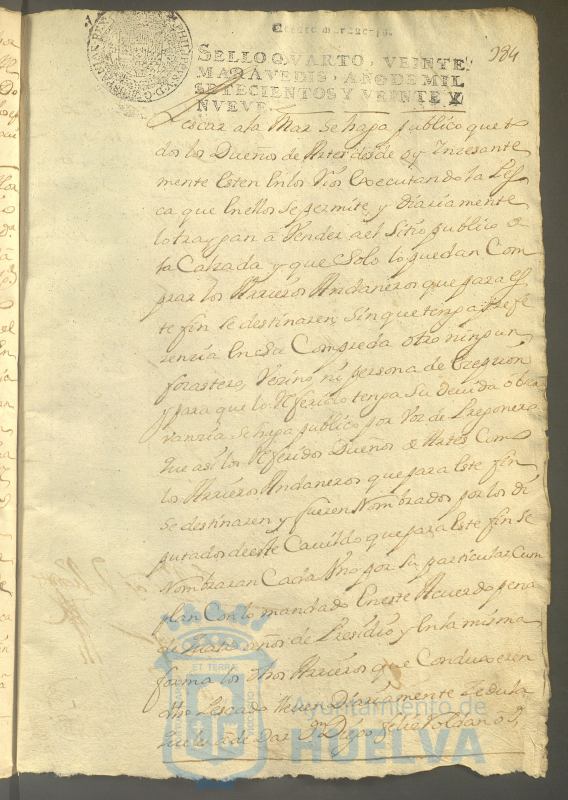 184
SELLO QVARTO, VEINTE
MARAVEDIS, AÑO DE MIL
SETECIENTOS Y VEINTE Y
NVEVE
Pescar a la Mar se haga publico que to
dos los Dueños de Artes desde oy Incesante
mente esten en los Rios executando la Pes
ca que en ellos se permite y diariamente
lo traygan a Vender a el Sitio publico de
la Calzada y que Solo lo puedan Com
prar los Harrieros Andaneros que para es
te fin se destinaren, sin que tenga prefe
renzia en su Compreda otro ningun
forastero, Vezino ni persona de Exepzion
y para que lo Referido tenga su devida obser
vanzia se haga publico por Voz de Pregonero
que asi los Referidos Dueños de Artes Como
los Harrieros Andaneros que para este fin
se destinaren y fueren Nombrados por los di
putados de este Cavildo que para este fin se
Nombraran Cada Año por su particular Cum
plan Con lo mandado en este Acuerdo pena
de quatro años de Presidio y en la misma
forma los otros Harrieros que Conduxeren
otro Pescado lleven Diariamente Zedula
que les a de dar Dn Diego
ET TERRÆ
Ayuntamiento de
HUELVA